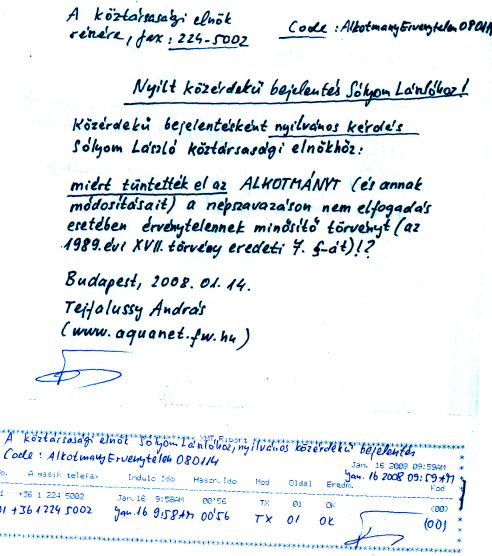 A köztársasági elnök
részére, fax: 224-5002
Code: AlkotmanyErvenytelen080114
Nyílt közérdekű bejelentés Sólyom Lászlóhoz!
Közérdekű bejelentésként nyilvános kérdés
Sólyom László köztársasági elnökhöz:
miért tüntették el az ALKOTMÁNYT (és annak
módosításait) a népszavazáson nem elfogadás
esetében érvénytelennek minősítő törvényt (az
1989. évi XVII. törvény eredeti 7. §-át)!?
Budapest, 2008.01.14.
Tejfalussy András
(www.aquanet.fw.hu)
A köztársasági elnök Sólyom Lászlóhoz, nyilvános közérdekű bejelentés
Code: AlkotmanyErvenytelen 080114
Jan. 16 2008 09:59AM
Jan. 16 2008 09:59AM
No. A másik telefax Induló Idő Haszn.Idő Mod Oldal Eredm. Kód
+36 1 224 5002 Jan.16 9:58AM 00'56 TX 01 OK (00)
01 +36 1 224 5002 Jan.16 9:58AM 00'56 TX 01 OK (00)